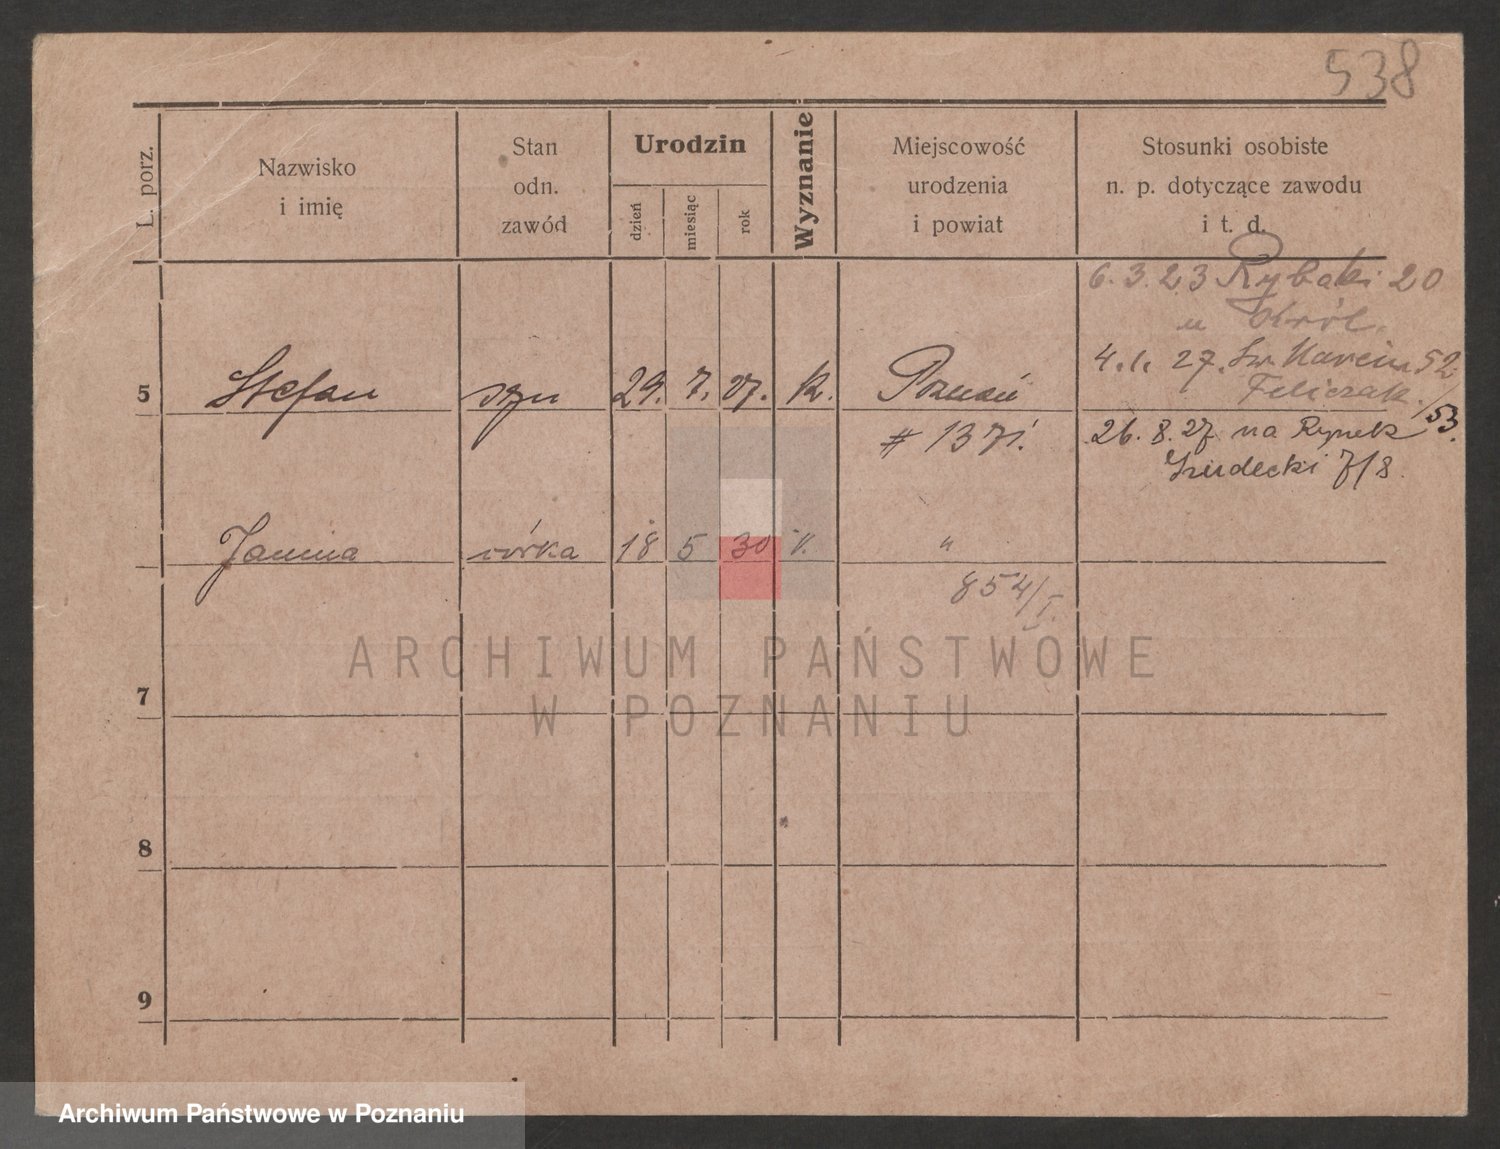 538
L. porz.
Nazwisko
i imię
Stan
odn.
zawód
Urodzin
dzień
miesiąc
rok
Wyznanie
Miejscowość
urodzenia
i powiat
Stosunki osobiste
n. p. dotyczące zawodu
i t. d.
6. 3. 23 Rybaki 20
u Król.
4. 1. 27. Św. Marcin 52/53.
Feliczak.
5 Stefan syn 29. 7. 27. k. Poznań
# 1371.
26. 8. 27 na Rynek
Śródecki 7/8.
Janina córka 18 5 30 k. "
854/I.
7
8
9
ARCHIWUM PAŃSTWOWE
W POZNANIU
Archiwum Państwowe w Poznaniu